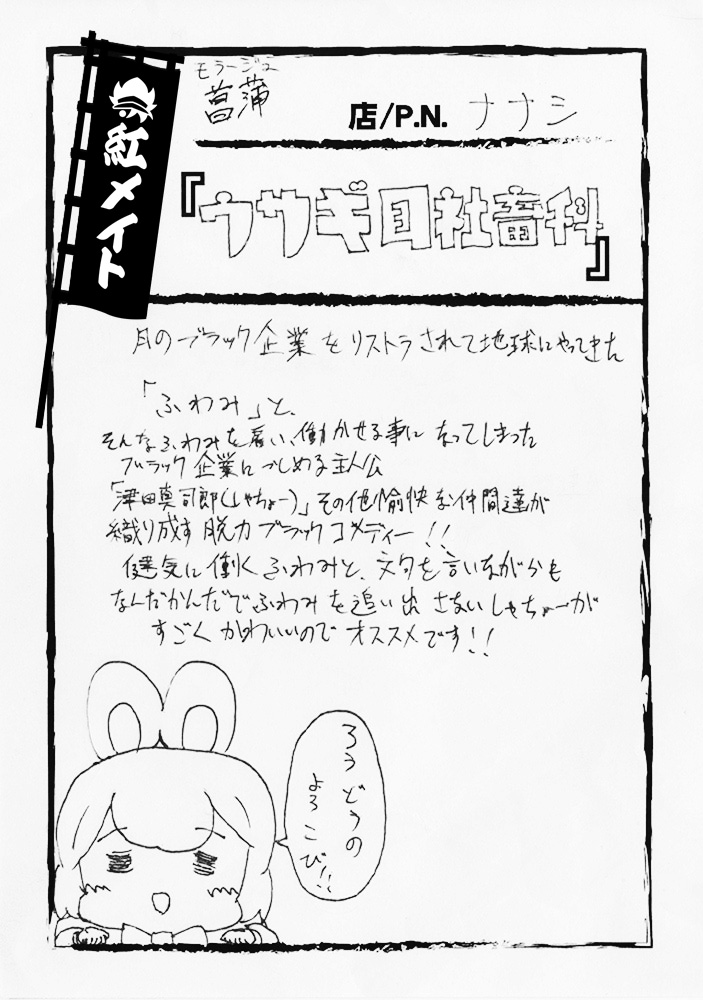 紅メイト
モラージュ
菖蒲
店/P.N. ナナシ
『ウサギ目社畜科』
月のブラック企業をリストラされて地球にやってきた
「ふわみ」と、
そんなふわみを雇い、働かせる事になってしまった
ブラック企業につとめる主人公
「津田真司郎(しゃちょー)」その他愉快な仲間達が
織り成す脱力ブラックコメディー!!
健気に働くふわみと、文句を言いながらも
なんだかんだでふわみを追い出さないしゃちょーが
すごくかわいいのでオススメです!!
ろうどうの
よろこび!!